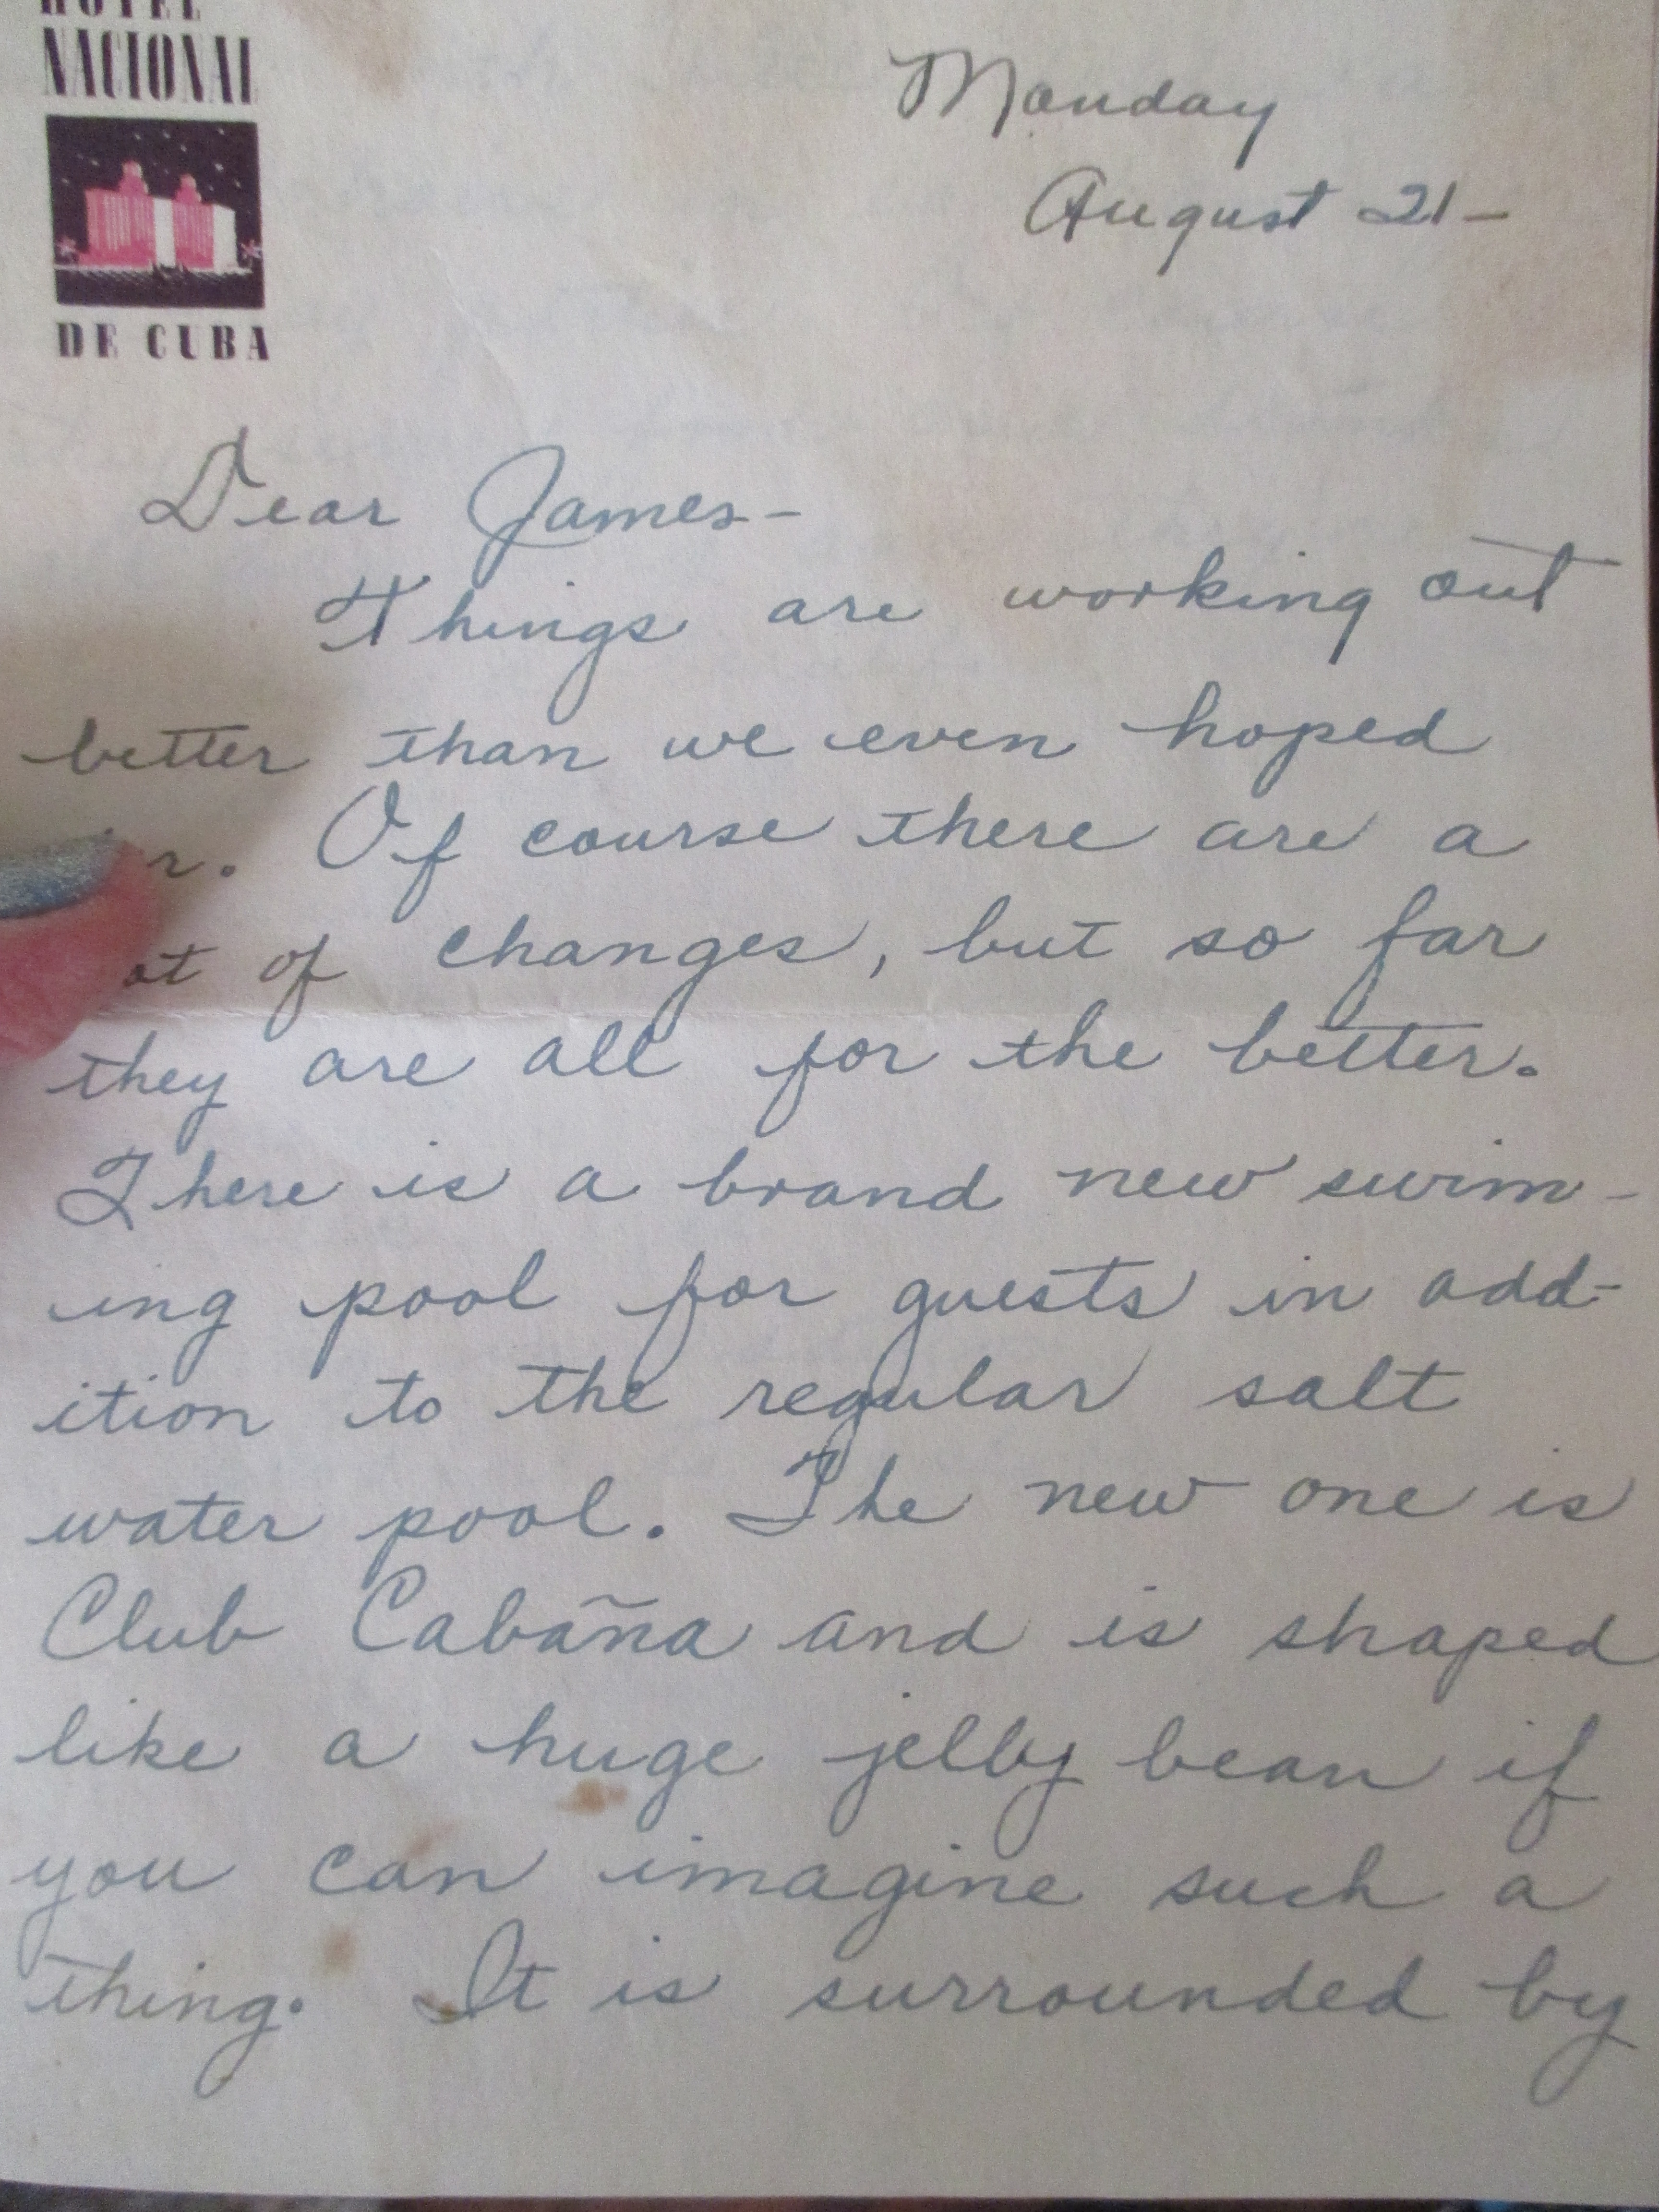 HOTEL
NACIONAL
DE CUBA
Monday
August 21-
Dear James-
Things are working out
better than we even hoped
Of course there are a
of changes, but so far
they are all for the better.
There is a brand new swim-
ing pool for guests in add-
ition to the regular salt
water pool. The new one is
Club Cabaña and is shaped
like a huge jelly bean if
you can imagine such a
thing. It is surrounded by